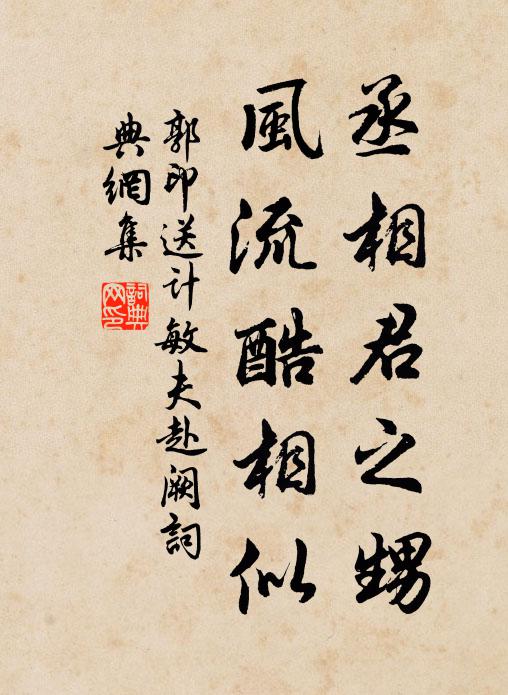 丞相君之甥
風流酷相似
郭印送計敏夫赴闕詞
典網集
詞典網印